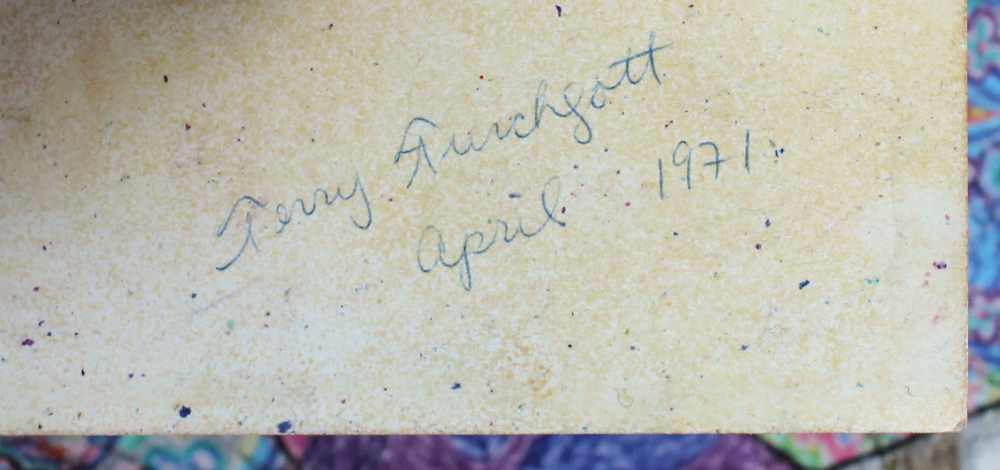 Terry Furchgott
April 1971.